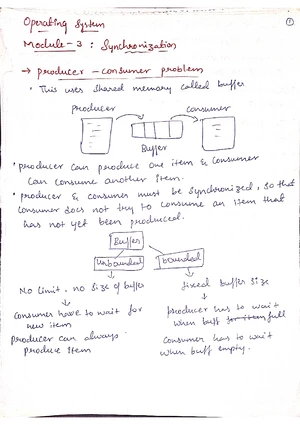 Operating System
Module-3 : Synchronization
→ producer - consumer problem
• This uses shared memory called buffer
producer consumer
Buffer
• producer can produce one item & consumer
can consume another item.
• producer & consumer must be synchronized, so that
consumer does not try to consume an item that
has not yet been produced.
Buffer
unbounded bounded
No limit. no size of buffer
fixed buffer size
consumer have to wait for
new item
producer has to wait
when buff full
producer can always
produce item
consumer has to wait
when buff empty.